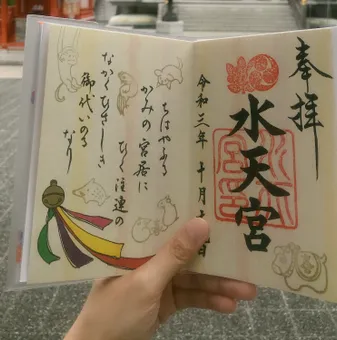 奉拝
水天宮
令和三年 十月十
日
ちはやふる
かみの宮居に
ひく注連の
なかくひさしき
御代いのる
なり